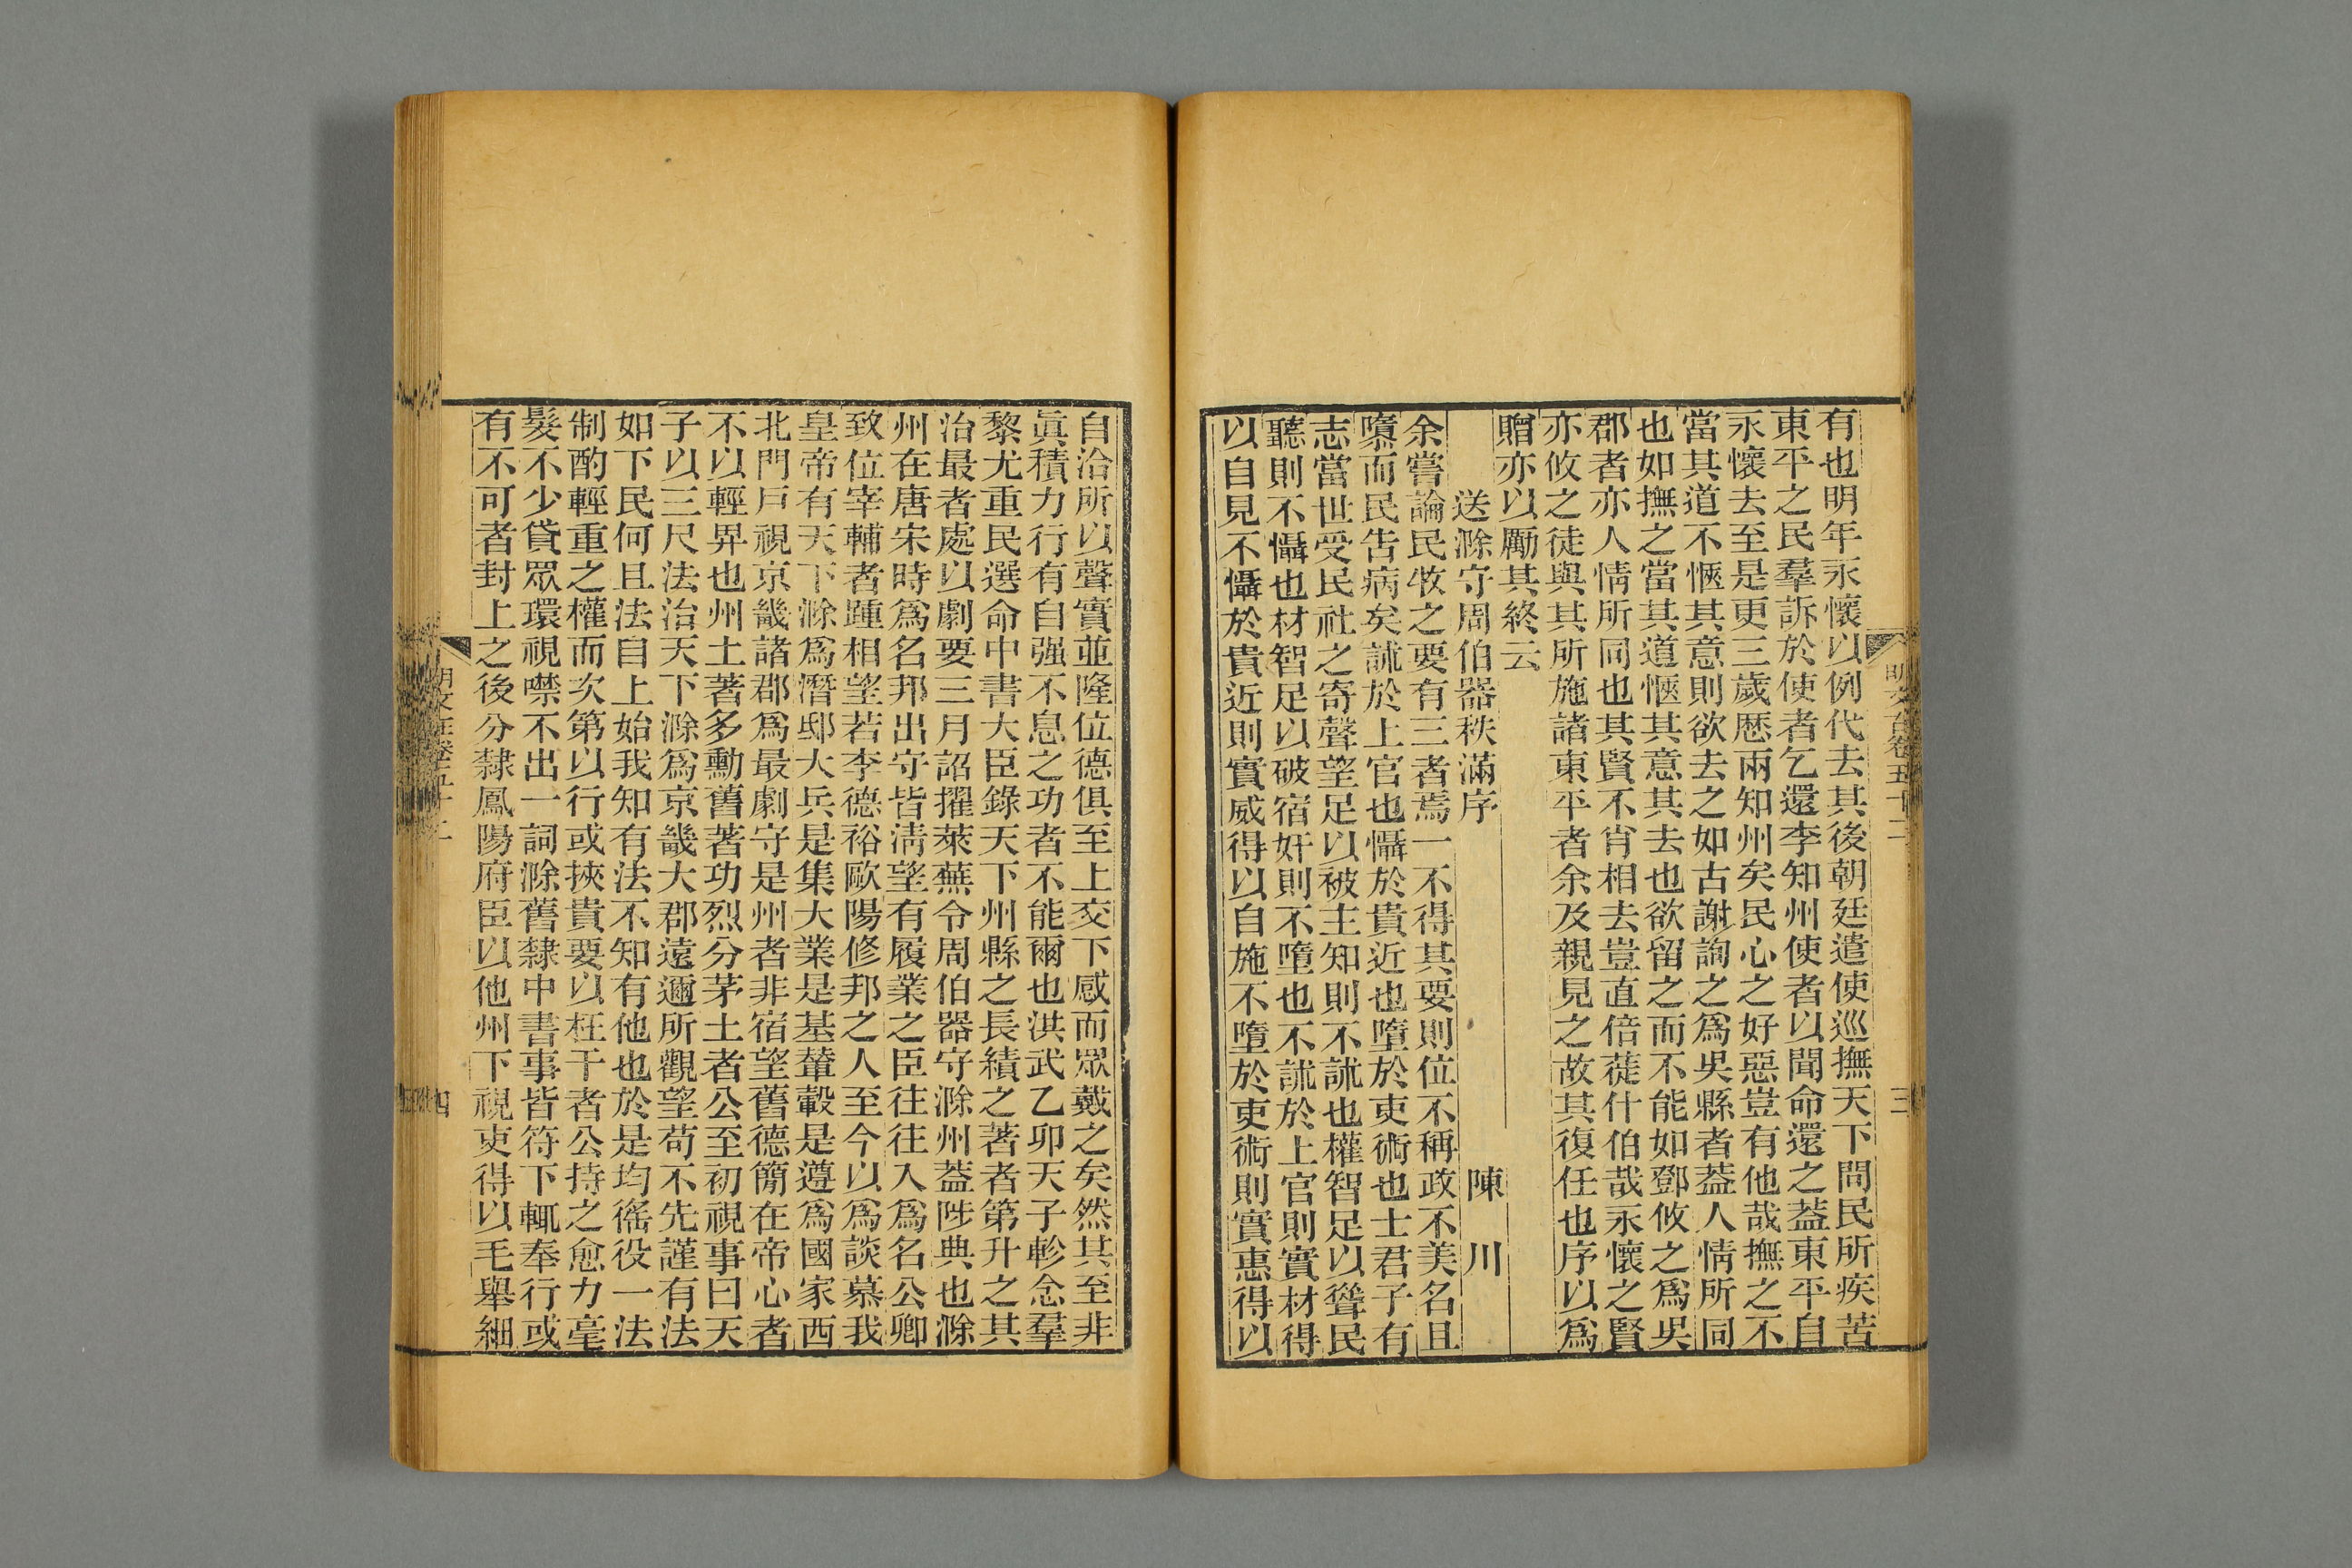 有也明年永懷以例代去其後朝廷遣使巡撫天下問民所疾苦
東平之民羣訴於使者乞還李知州使者以聞命還之葢東平自
永懷去至是更三歲歷兩知州矣民心之好惡豈有他哉撫之不
當其道不愜其意則欲去之如古謝詾之爲吳縣者葢人情所同
也如撫之當其道愜其意其去也欲留之而不能如鄧攸之爲吳
郡者亦人情所同也其賢不肖相去豈直倍蓰什伯哉永懷之賢
亦攸之徒與其所施諸東平者余及親見之故其復任也序以爲
贈亦以勵其終云
送滁守周伯器秩滿序 陳川
余嘗論民牧之要有三者焉一不得其要則位不稱政不美名且
隳而民告病矣訹於上官也懾於貴近也墮於吏術也士君子有
志當世受民社之寄聲望足以被主知則不訹也權智足以聳民
聽則不懾也材智足以破宿奸則不墮也不訹於上官則實材得
以自見不懾於貴近則實威得以自施不墮於吏術則實惠得以
自洽所以聲實並隆位德俱至上交下感而眾戴之矣然其至非
眞積力行有自强不息之功者不能爾也洪武乙卯天子軫念羣
黎尤重民選命中書大臣錄天下州縣之長績之著者第升之其
治最者處以劇要三月詔擢萊蕪令周伯器守滁州葢陟典也滁
州在唐宋時爲名邦出守皆淸望有履業之臣往往入爲名公卿
致位宰輔者踵相望若李德裕歐陽修邦之人至今以爲談慕我
皇帝有天下滁爲潛邸大兵是集大業是基輦轂是遵爲國家西
北門戶視京畿諸郡爲最劇守是州者非宿望舊德簡在帝心者
不以輕畀也州土著多勳舊著功烈分茅土者公至初視事曰天
子以三尺法治天下滁爲京畿大郡遠邇所觀望苟不先謹有法
如下民何且法自上始我知有法不知有他也於是均徭役一法
制酌輕重之權而次第以行或挾貴要以枉干者公持之愈力毫
髮不少貸眾環視噤不出一詞滁舊隸中書事皆符下輒奉行或
有不可者封上之後分隸鳳陽府臣以他州下視吏得以毛舉細
三
四